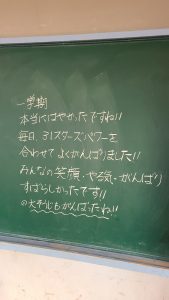 一学期
本当にはやかったですね!!
毎日、31スターズパワーを
合わせてよくがんばりました!!
みんなの笑顔・やる気・がんばり
すばらしかったです!!
の大そうじもがんばったね!!